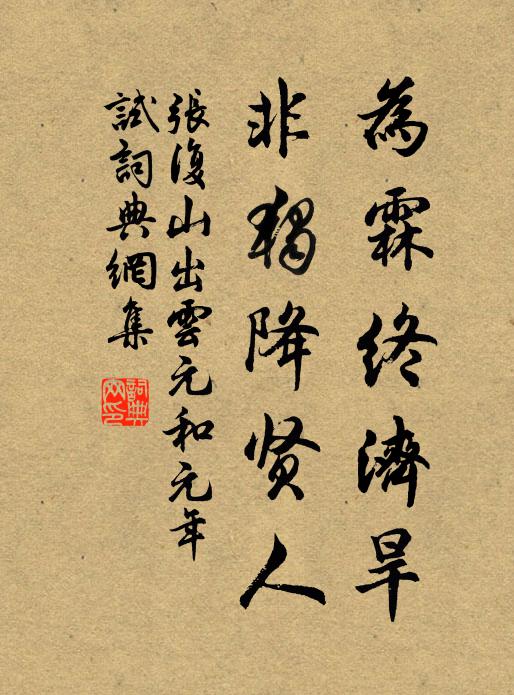 為霖終濟旱
非獨降贤人
張復山出雲元和元年
試詞典網集
詞典网印